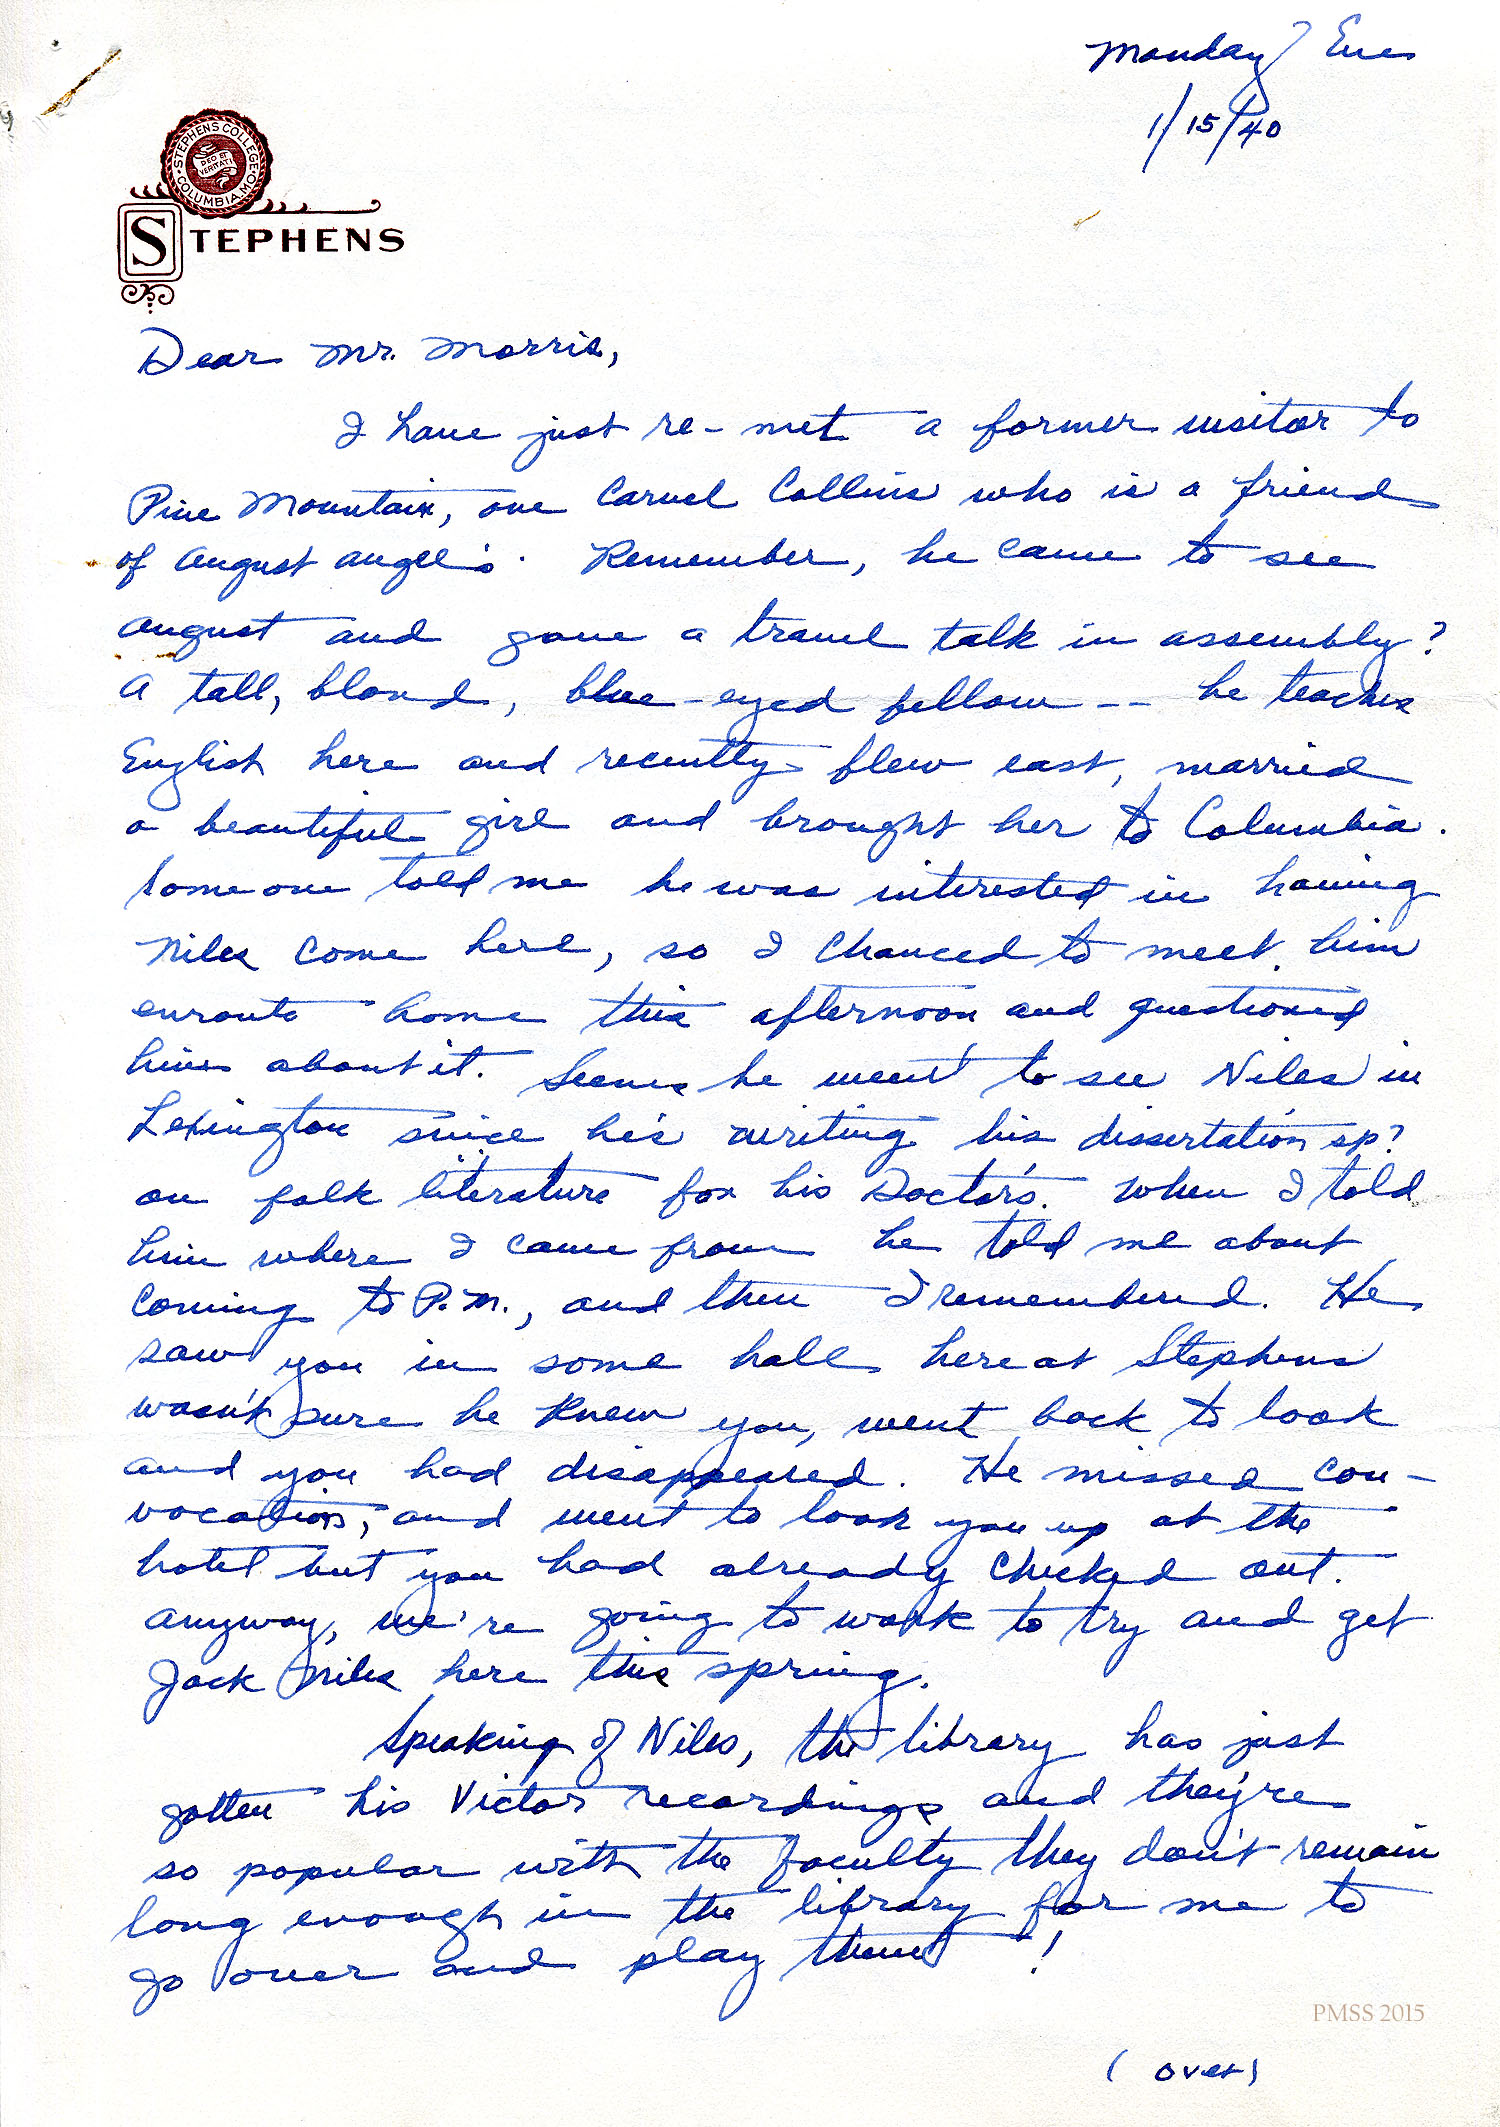 Monday Eve
1/15/40
STEPHENS COLLEGE
DEO ET VERITATI
COLUMBIA, MO.
STEPHENS
Dear Mr. Morris,
I have just re-met a former visitor to
Pine Mountain, one Carvel Collins who is a friend
of August Angel's. Remember, he came to see
August and gave a travel talk in assembly?
A tall, blond, blue-eyed fellow -- he teaches
English here and recently flew east, married
a beautiful girl and brought her to Columbia.
Someone told me he was interested in having
Niles come here, so I chanced to meet him
enroute home this afternoon and questioned
him about it. Seems he went to see Niles in
Lexington since he's writing his dissertation sp?
on folk literature for his Doctor's. When I told
him where I came from he told me about
coming to P.M., and then I remembered. He
saw you in some hall here at Stephens
wasn't sure he knew you, went back to look
and you had disappeared. He missed con-
vocation, and went to look you up at the
hotel but you had already checked out.
Anyway, we're going to work to try and get
Jack Niles here this spring.
Speaking of Niles, the library has just
gotten his Victor recordings and they're
so popular with the faculty they don't remain
long enough in the library for me to
go over and play them!
PMSS 2015
(over)